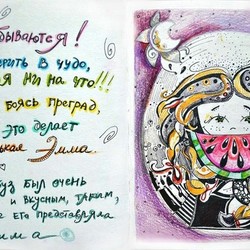 бываются!
ерить в чудо,
я ни на что!!!
боясь преград,
это делает
ькая Эмма.
уз был очень
и вкусным, таким,
его представляла
мма